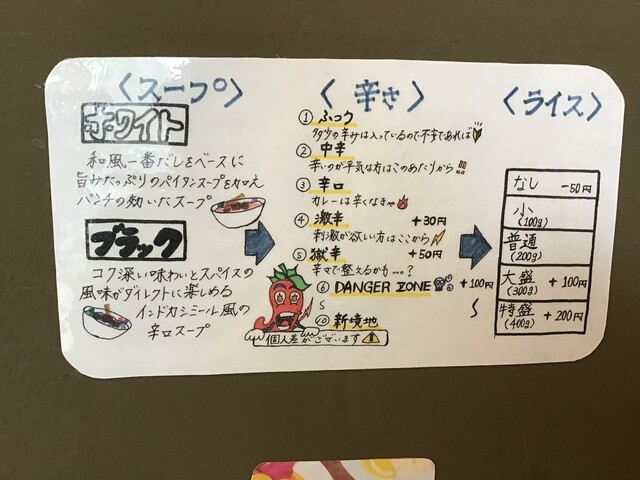 〈スープ〉
ホワイト
和風一番だしをベースに
旨みたっぷりのパイタンスープを加え
パンチの効いたスープ
ブラック
コク深い味わいとスパイスの
風味がダイレクトに楽しめる
インドカシミール風の
辛口スープ
〈辛さ〉
① ふつう
多少の辛みは入っているので不安であれば
② 中辛
辛いのが平気な方はこのあたりから!!!
③ 辛口
カレーは辛くなきゃ
④ 激辛 +30円
刺激が欲しい方はここから
⑤ 獄辛 +50円
辛さで整えるかも…?
⑥ DANGER ZONE +100円
〜
〜
⑩ 新境地
個人差がございます
〈ライス〉
なし -50円
小
(100g)
普通
(200g)
大盛 +100円
(300g)
特盛 +200円
(400g)